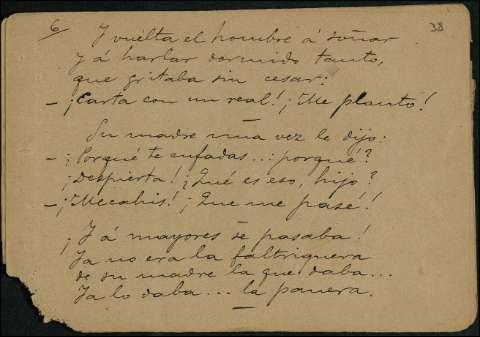 6/ 38
Y vuelta el hombre á soñar
y á hablar dormido tanto,
que gritaba sin cesar:
— ¡Carta con un real! ¡Me plantó!
—
Su madre una vez le dijo:
— ¿Porqué te enfadas...: porqué?
¡Despierta! ¿Qué es eso, hijo?
— ¡Mecahis! ¡Que me pasé!!
—
¡Y á mayores se pasaba!
Ya no era la faltriquera
de su madre la que daba...
Ya lo daba... la panera.
—